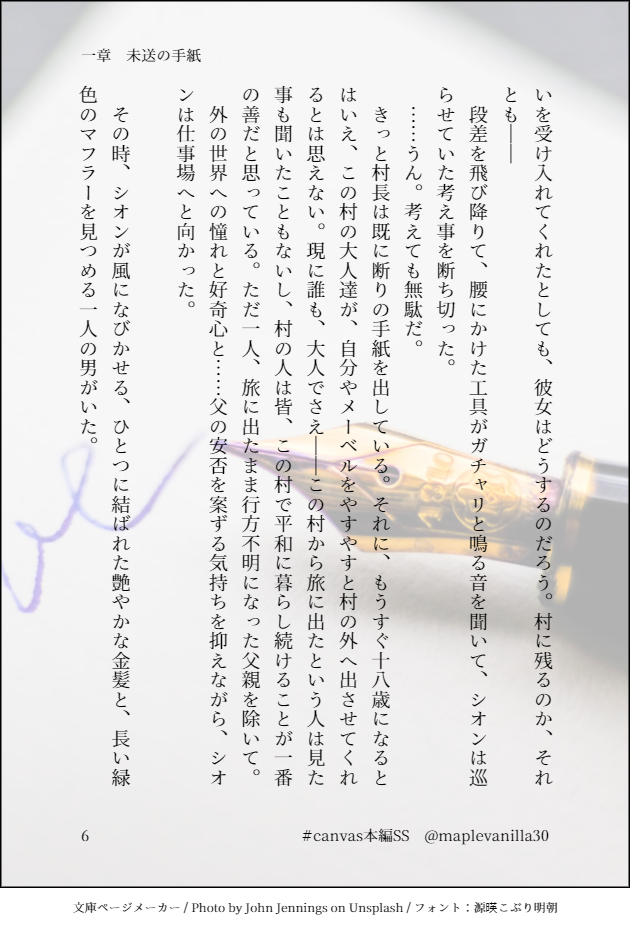 一章　未送の手紙
いを受け入れてくれたとしても、彼女はどうするのだろう。村に残るのか、それ
とも――
　段差を飛び降りて、腰にかけた工具がガチャリと鳴る音を聞いて、シオンは巡
らせていた考え事を断ち切った。
　……うん。考えても無駄だ。
　きっと村長は既に断りの手紙を出している。それに、もうすぐ十八歳になると
はいえ、この村の大人達が、自分やメーベルをやすやすと村の外へ出させてくれ
るとは思えない。現に誰も、大人でさえ――この村から旅に出たという人は見た
事も聞いたこともないし、村の人は皆、この村で平和に暮らし続けることが一番
の善だと思っている。ただ一人、旅に出たまま行方不明になった父親を除いて。
　外の世界への憧れと好奇心と……父の安否を案ずる気持ちを抑えながら、シオ
ンは仕事場へと向かった。
　その時、シオンが風になびかせる、ひとつに結ばれた艶やかな金髪と、長い緑
色のマフラーを見つめる一人の男がいた。
6
#canvas本編SS　@maplevanilla30
文庫ページメーカー / Photo by John Jennings on Unsplash / フォント：源暎こぶり明朝